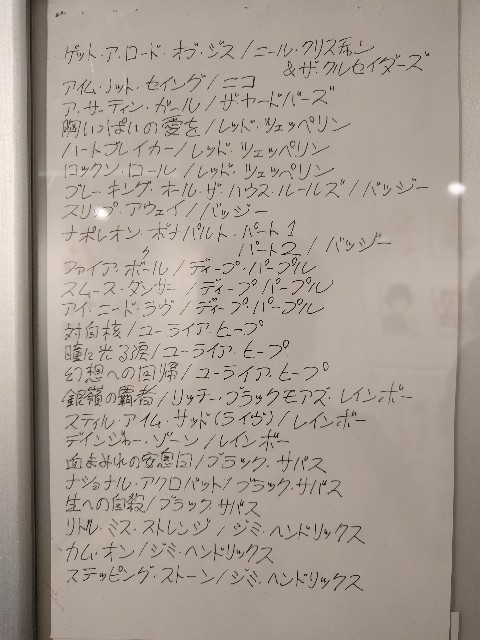 ゲット・ア・ロード・オブ・ジス / ニール・クリスチャン
& ザ・クルセイダーズ
アイム・ノット・セイング / ニコ
ア・サーティン・ガール / ザ・ヤードバーズ
胸いっぱいの愛を / レッド・ツェッペリン
ハートブレイカー / レッド・ツェッペリン
ロックン・ロール / レッド・ツェッペリン
ブレーキング・オール・ザ・ハウス・ルールズ / バッジー
スリップ・アウェイ / バッジー
ナポレオン・ボナパルト・パート1
パート2 / バッジー
ファイア・ボール / ディープ・パープル
スムース・ダンサー / ディープ・パープル
アイ・ニード・ラヴ / ディープ・パープル
対自核 / ユーライア・ヒープ
瞳に光る涙 / ユーライア・ヒープ
幻想への回帰 / ユーライア・ヒープ
銀嶺の覇者 / リッチー・ブラックモアズ・レインボー
スティル・アイム・サッド (ライヴ) / レインボー
デインジャー・ゾーン / レインボー
血まみれの安息日 / ブラック・サバス
ナショナル・アクロバット / ブラック・サバス
生への自殺 / ブラック・サバス
リトル・ミス・ストレンジ / ジミ・ヘンドリックス
カム・オン / ジミ・ヘンドリックス
ステッピング・ストーン / ジミ・ヘンドリックス